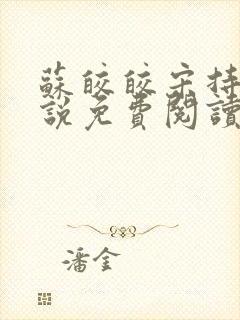 蘇皎皎宋持
說免費閱讀
潘金